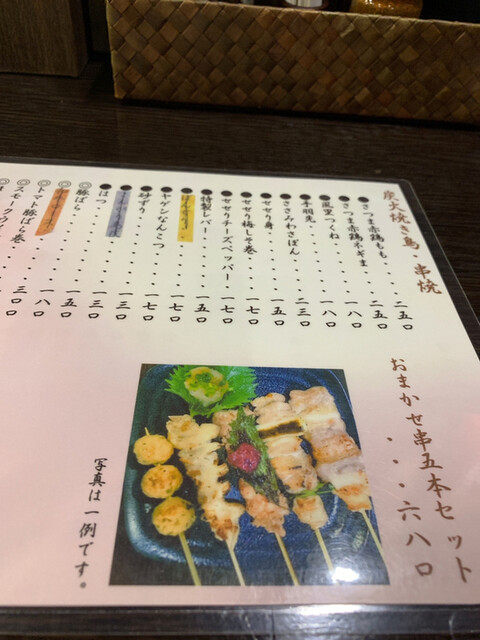 炭火焼き鳥・串焼
●さつま赤鶏もも・・・二五〇
●さつま赤鶏ネギま・・二五〇
●風里つくね・・・・・一八〇
●手羽先・・・・・・・一八〇
●ささみわさぽん・・・二三〇
●せせり身・・・・・・一五〇
●せせり梅しそ巻・・・一七〇
●せせりチーズペッパー・一七〇
●特製レバー・・・・・一五〇
●ヤゲンなんこつ・・・一七〇
●砂ずり・・・・・・・
●はつ・・・・・・・・一三〇
◎豚ばら・・・・・・・一五〇
◎トマト豚ばら巻・・・一八〇
◎スモーク
おまかせ串五本セット
・・・六八〇
写真は一例です。